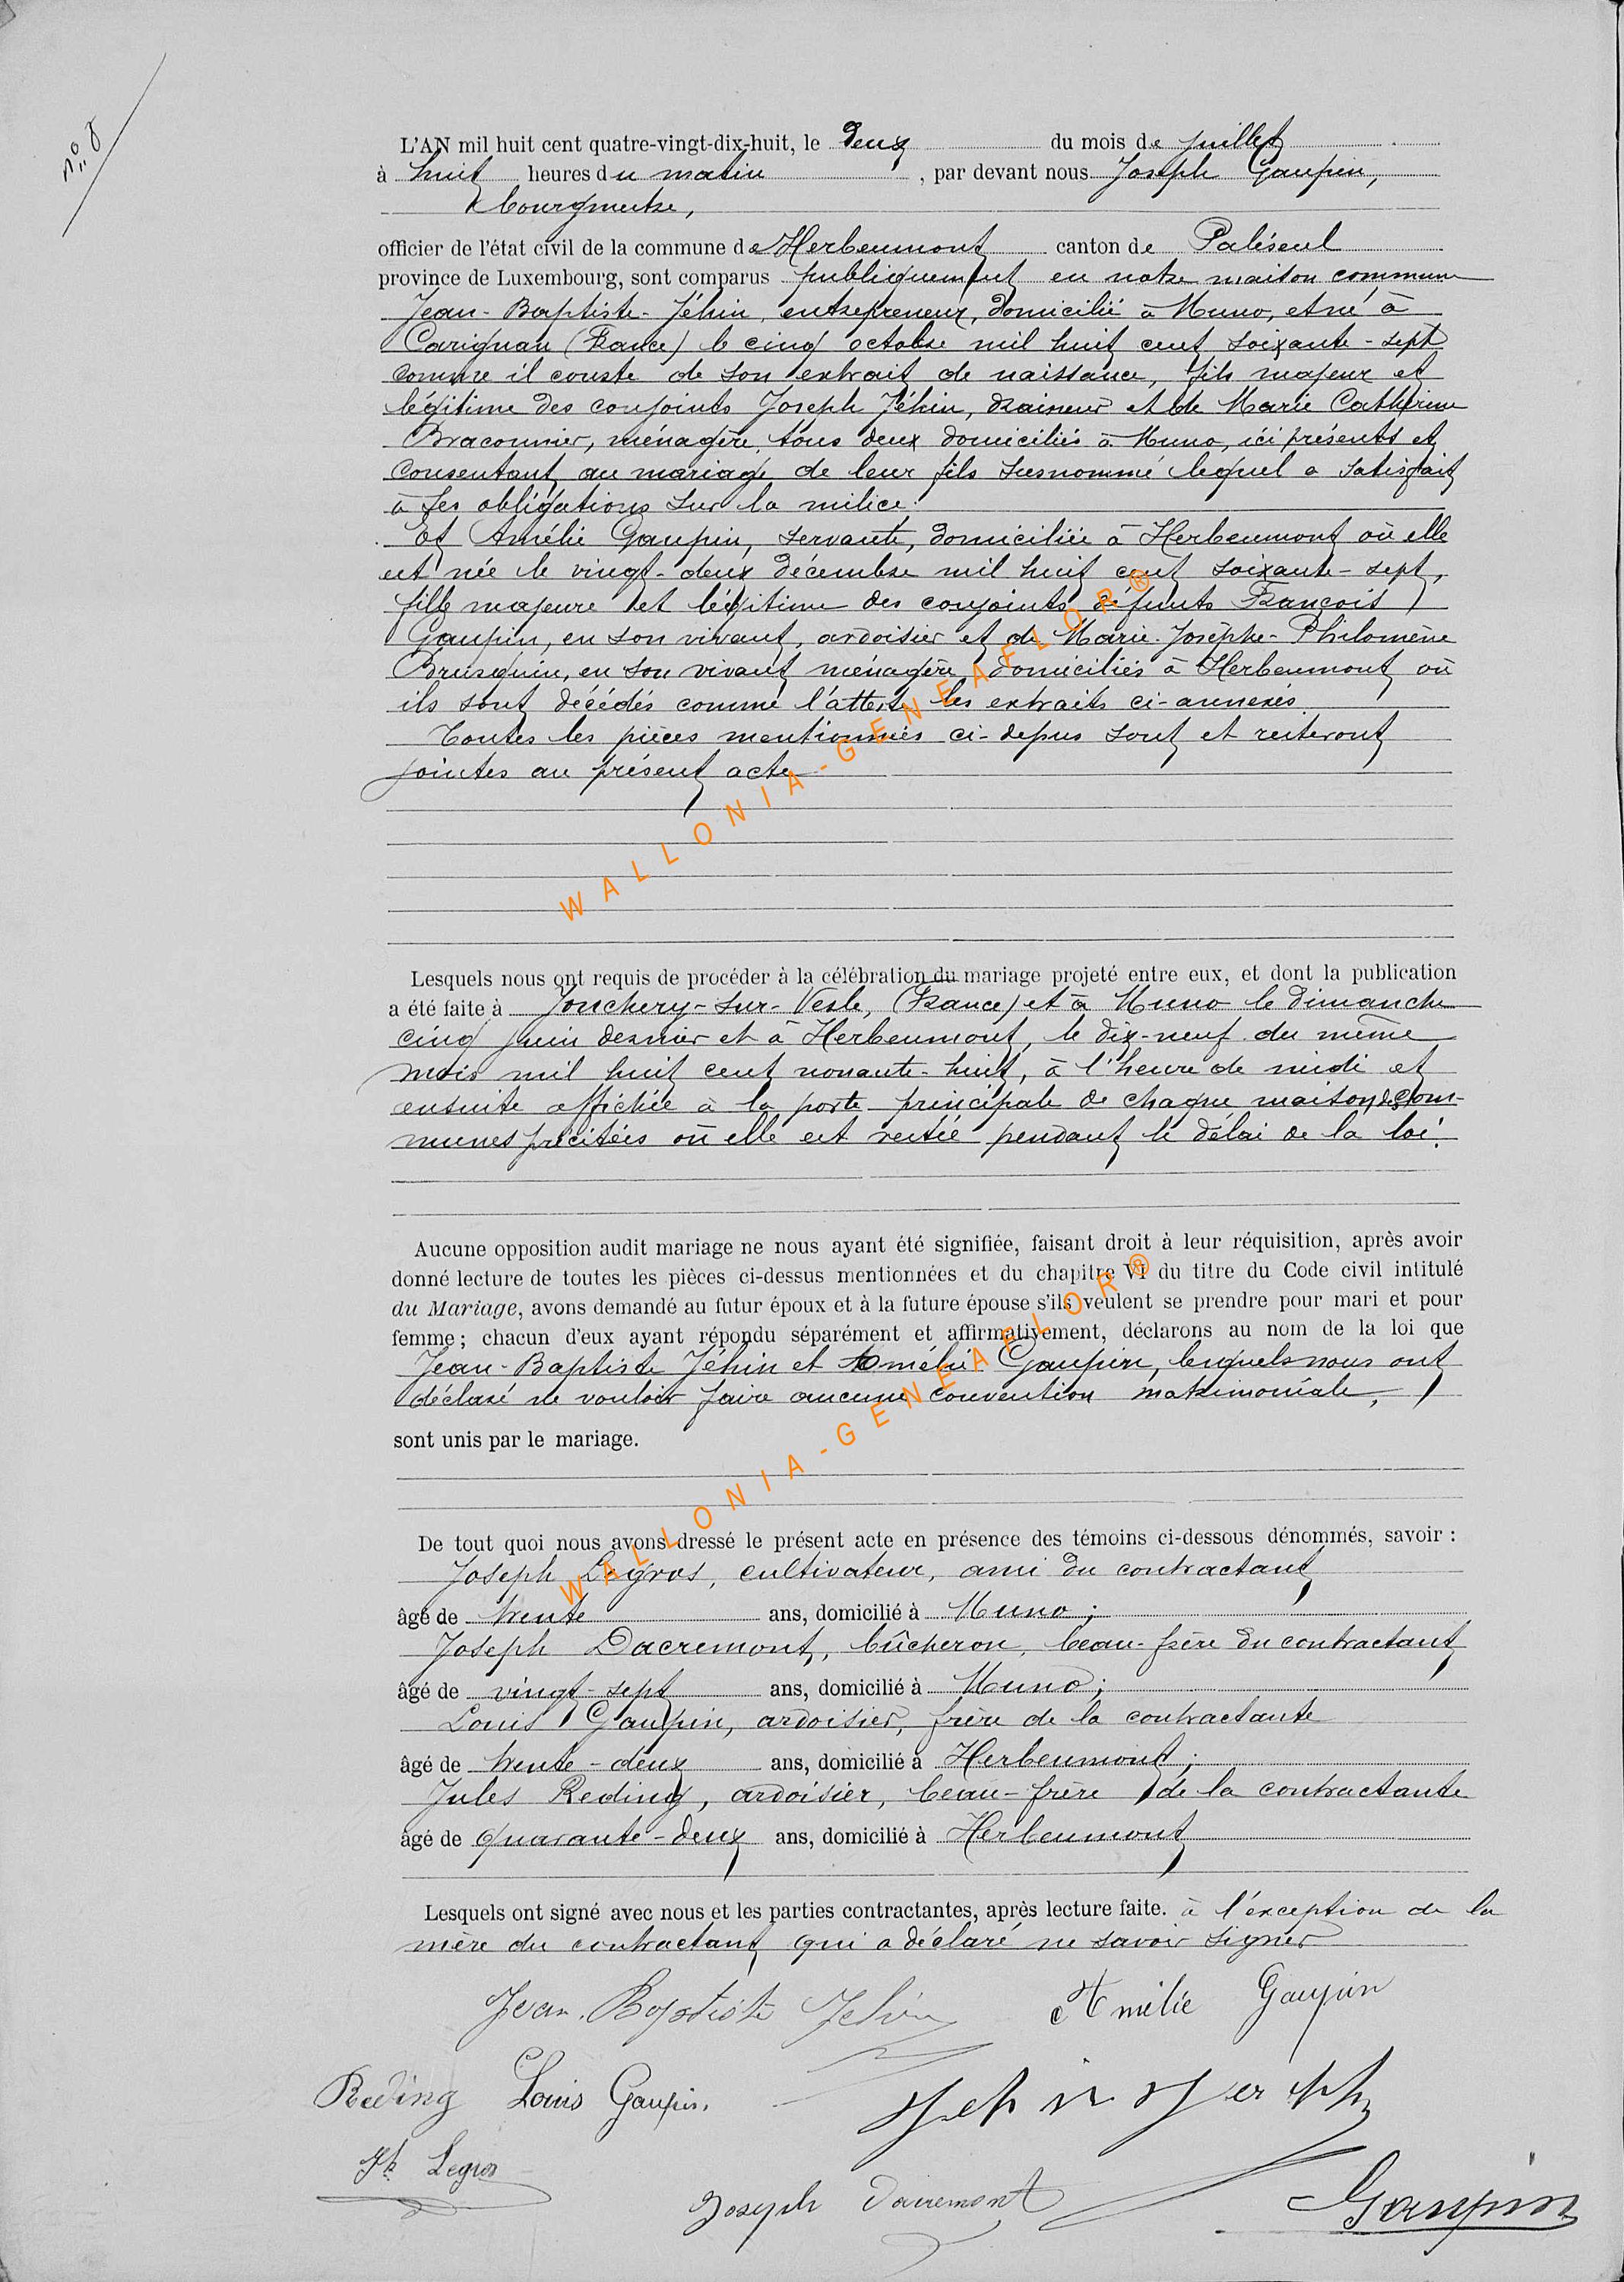 n° 8
L'AN mil huit cent quatre-vingt-dix-huit, le deux du mois de juillet
à huit heures du matin, par devant nous Joseph Gaupin,
bourgmestre,
officier de l'état civil de la commune de Herbeumont canton de Paliseul
province de Luxembourg, sont comparus publiquement en notre maison commune
Jean-Baptiste Jéhin, entrepreneur, domicilié à Muno, et né à
Carignan (France) le cinq octobre mil huit cent soixante-sept
comme il conste de son extrait de naissance, fils majeur et
légitime des conjoints Joseph Jéhin, et de Marie Catherine
Braconnier, ménagère, tous deux domiciliés à Muno, ici présents et
consentant au mariage de leur fils susnommé lequel a satisfait
à ses obligations sur la milice.
Et Amélie Gaupin, servante, domiciliée à Herbeumont où elle
est née le vingt-deux décembre mil huit cent soixante-sept,
fille majeure et légitime des conjoints défunts François
Gaupin, en son vivant, ardoisier et de Marie-Josèphe-Philomène
Brusquin, en son vivant ménagère, domiciliés à Herbeumont où
ils sont décédés comme l'atteste les extraits ci-annexés.
Toutes les pièces mentionnées ci-dessus sont et resteront
jointes au présent acte
WALLONIA-GENEAFLOR®
Lesquels nous ont requis de procéder à la célébration du mariage projeté entre eux, et dont la publication
a été faite à Jonchery-sur-Vesle, (France) et à Muno le dimanche
cinq juin dernier et à Herbeumont, le dix-neuf du même
mois mil huit cent nonante-huit, à l'heure de midi et
ensuite affichée à la porte principale de chaque maison des com-
munes précitées où elle est restée pendant le délai de la loi.
Aucune opposition audit mariage ne nous ayant été signifiée, faisant droit à leur réquisition, après avoir
donné lecture de toutes les pièces ci-dessus mentionnées et du chapitre VI du titre du Code civil intitulé
du Mariage, avons demandé au futur époux et à la future épouse s'ils veulent se prendre pour mari et pour
femme; chacun d'eux ayant répondu séparément et affirmativement, déclarons au nom de la loi que
Jean-Baptiste Jéhin et Amélie Gaupin, lesquels nous ont
déclaré ne vouloir faire aucune convention matrimoniale,
sont unis par le mariage.
WALLONIA-GENEAFLOR®
De tout quoi nous avons dressé le présent acte en présence des témoins ci-dessous dénommés, savoir :
Joseph Legros, cultivateur, ami du contractant
âgé de trente ans, domicilié à Muno;
Joseph Dacremont, bûcheron, beau-frère du contractant
âgé de vingt-sept ans, domicilié à Muno;
Louis Gaupin, ardoisier, frère de la contractante
âgé de trente-deux ans, domicilié à Herbeumont;
Jules Reding, ardoisier, beau-frère de la contractante
âgé de quarante-deux ans, domicilié à Herbeumont
Lesquels ont signé avec nous et les parties contractantes, après lecture faite. à l'exception de la
mère du contractant qui a déclaré ne savoir signer
Jean-Baptiste Jehin Amélie Gaupin
Reding Louis Gaupin. Jehin Joseph
Jh Legros
Joseph Dacremont Gaupin